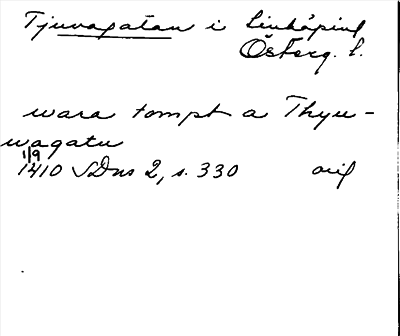 Tjuvagatan i Linköping
Österg. l.
wara tompt a Thyu-
wagatu
1/9
1410 SDns 2, s. 330 orig